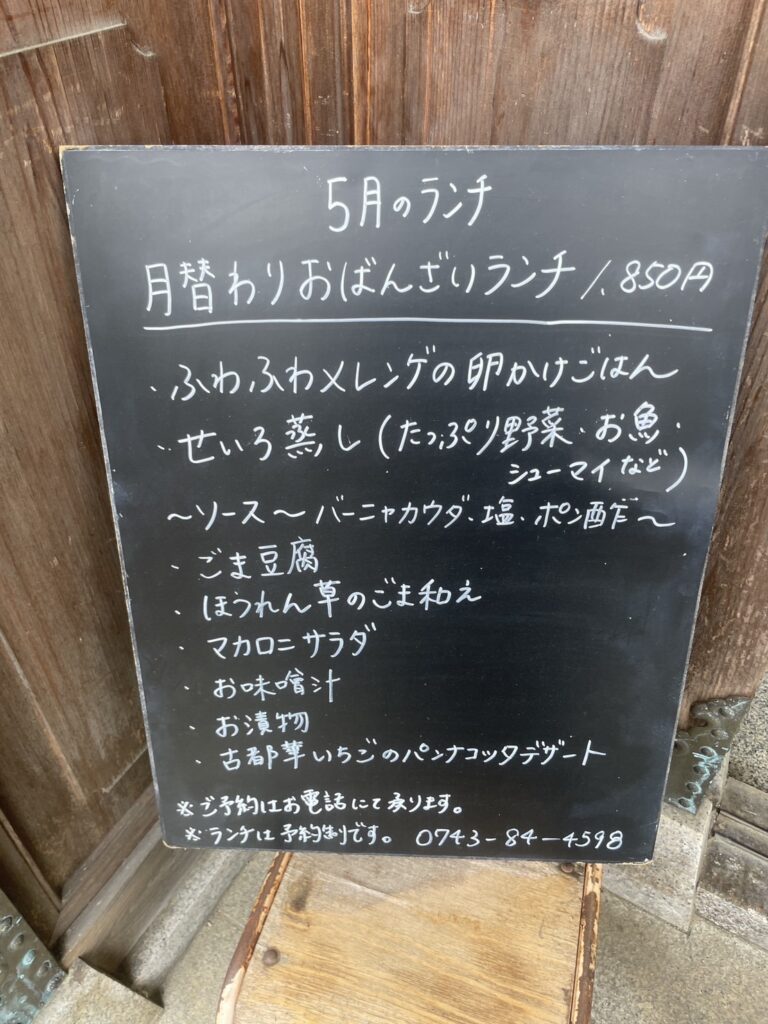 5月のランチ
月替わりおばんざいランチ 1,850円
・ふわふわメレンゲの卵かけごはん
・せいろ蒸し(たっぷり野菜・お魚・
シューマイなど)
～ソース～ バーニャカウダ、塩、ポン酢～
・ごま豆腐
・ほうれん草のごま和え
・マカロニサラダ
・お味噌汁
・お漬物
・古都華いちごのパンナコッタデザート
※ご予約はお電話にて承ります。
※ランチは予約制です。 0743-84-4598